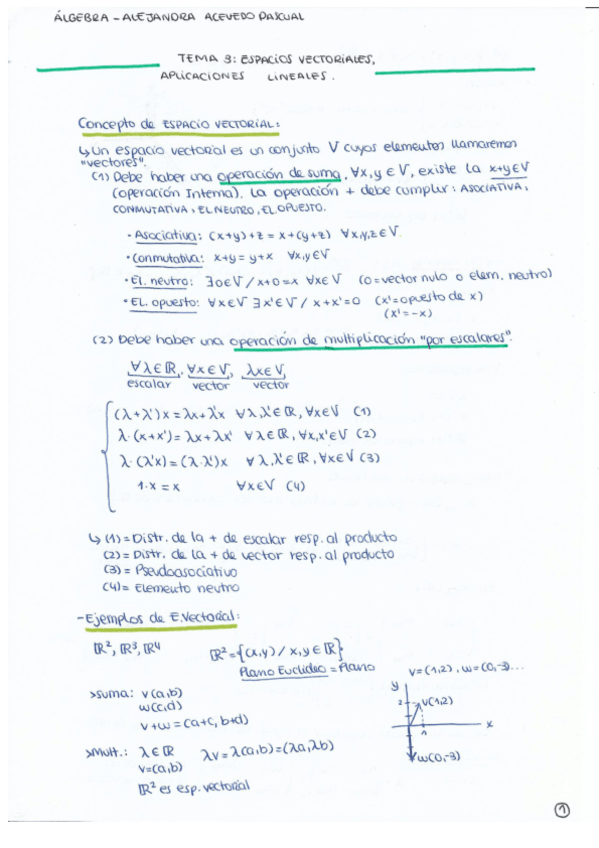 ÁLGEBRA - ALEJANDRA ACEVEDO PASCUAL
TEMA 3: ESPACIOS VECTORIALES,
APLICACIONES LINEALES.
Concepto de ESPACIO VECTORIAL:
↳ Un espacio vectorial es un conjunto V cuyos elementos llamaremos
"vectores".
(1) Debe haber una operación de suma, ∀x,y ∈ V, existe la x+y∈V
(operación Interna). La operación + debe cumplir: ASOCIATIVA,
CONMUTATIVA, EL NEUTRO, EL OPUESTO.
· Asociativa: (x+y)+z = x+(y+z) ∀x,y,z∈V.
· Conmutativa: x+y = y+x ∀x,y∈V
· El. neutro: ∃0∈V / x+0=x ∀x∈V (0=vector nulo o elem. neutro)
· EL. opuesto: ∀x∈V ∃x'∈V / x+x'=0 (x'=opuesto de x)
(x'=-x)
(2) Debe haber una operación de multiplicación "por escalares".
∀λ∈ℝ, ∀x∈V, λx∈V,
escalar vector vector
(λ+λ')x = λx+λ'x ∀λ,λ'∈ℝ, ∀x∈V (1)
λ·(x+x') = λx+λx' ∀λ∈ℝ, ∀x,x'∈V (2)
λ·(λ'x) = (λ·λ')x ∀λ,λ'∈ℝ, ∀x∈V (3)
1·x = x ∀x∈V (4)
↳ (1) = Distr. de la + de escalar resp. al producto
(2) = Distr. de la + de vector resp. al producto
(3) = Pseudoasociativo
(4) = Elemento neutro
- Ejemplos de E.Vectorial:
ℝ², ℝ³, ℝ⁴ ℝ² = {(x,y) / x,y∈ℝ}
Plano Euclídeo = Plano
v=(1,2), w=(0,-3)...
>Suma: v(a,b)
w(c,d)
v+w = (a+c, b+d)
y
2
v(1,2)
1
x
w(0,-3)
>Mult.: λ∈ℝ λv = λ(a,b) = (λa, λb)
v=(a,b)
ℝ² es esp. vectorial
1